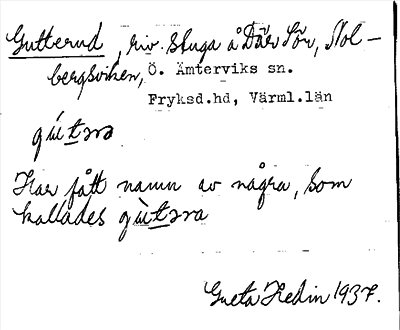 Gutterud, riv. stuga å Där Sör, Stol-
bergsviken, Ö. Ämterviks sn.
Fryksd.hd, Värml.län
Har fått namn av några, som
kallades
Greta Hedin 1937.